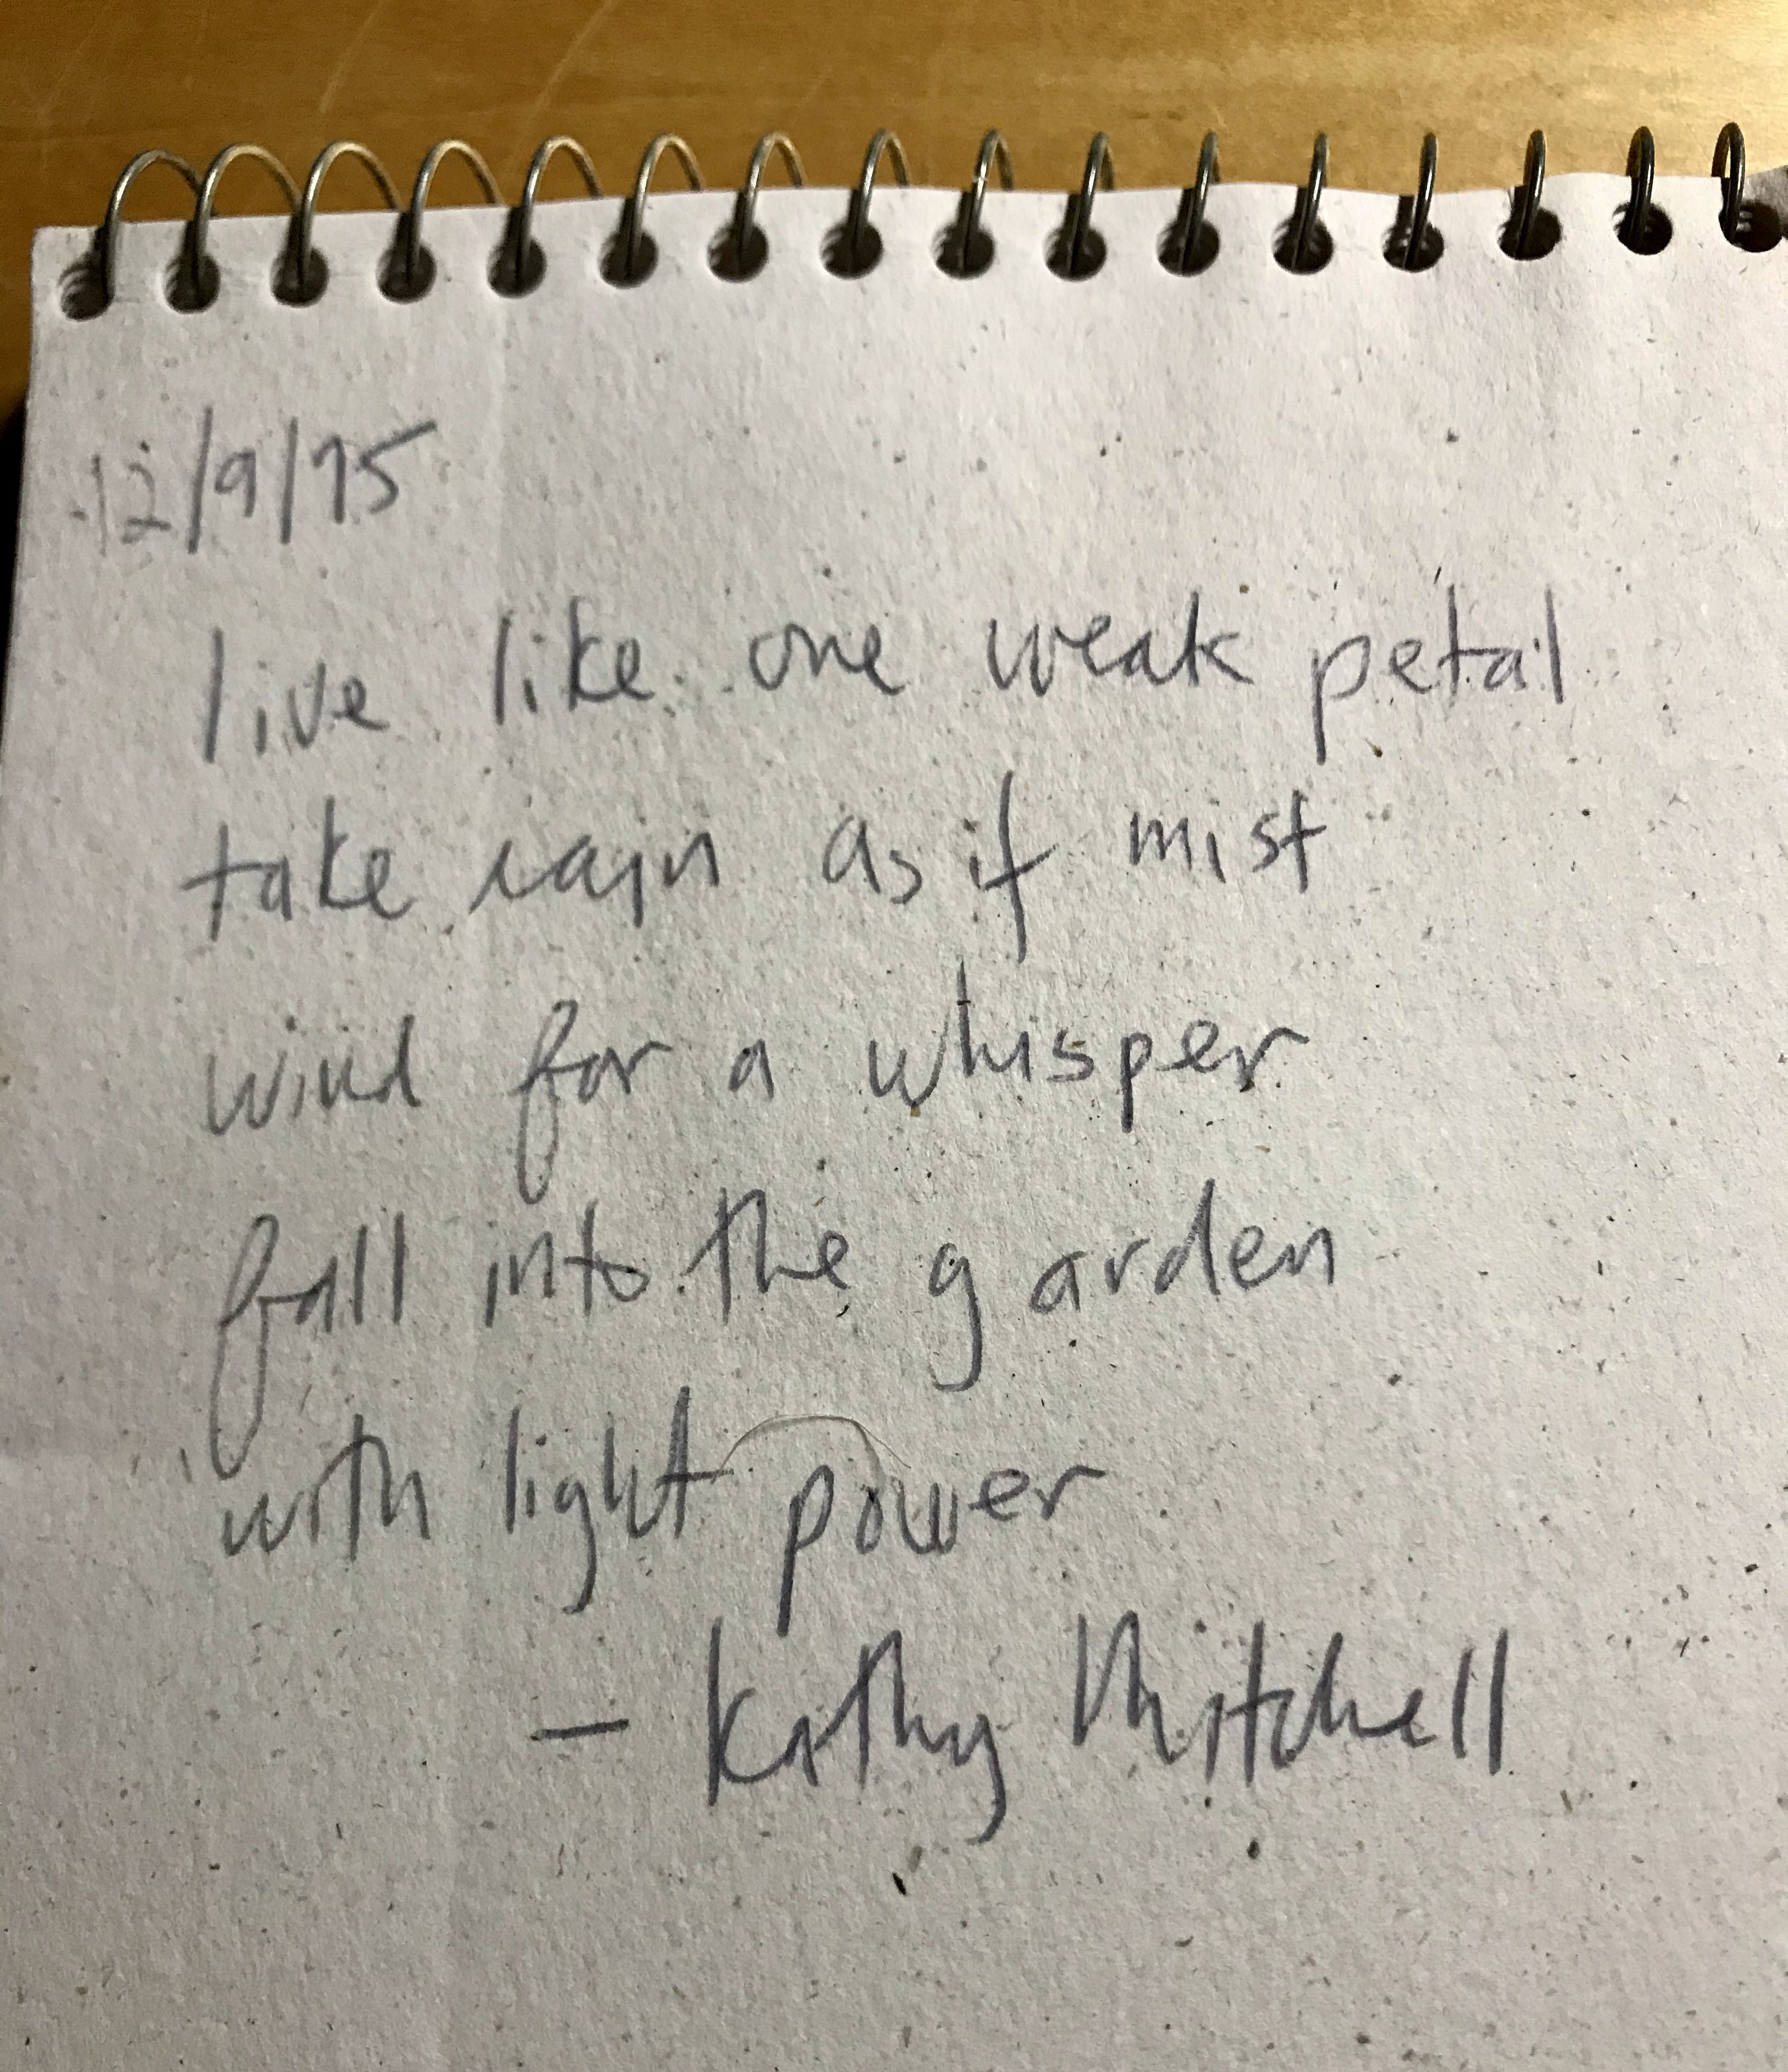 12/9/75
live like one weak petal
take rain as if mist
wind for a whisper
fall into the garden
with light power
- Kathy Mitchell